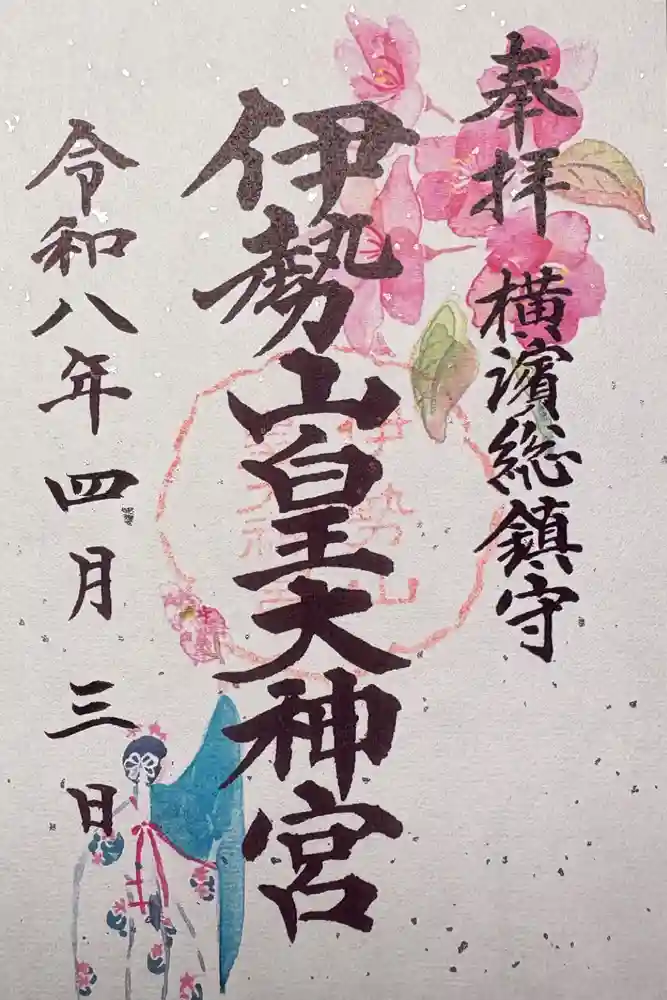 奉拝 横濱総鎮守
伊勢山皇大神宮
令和八年四月三日